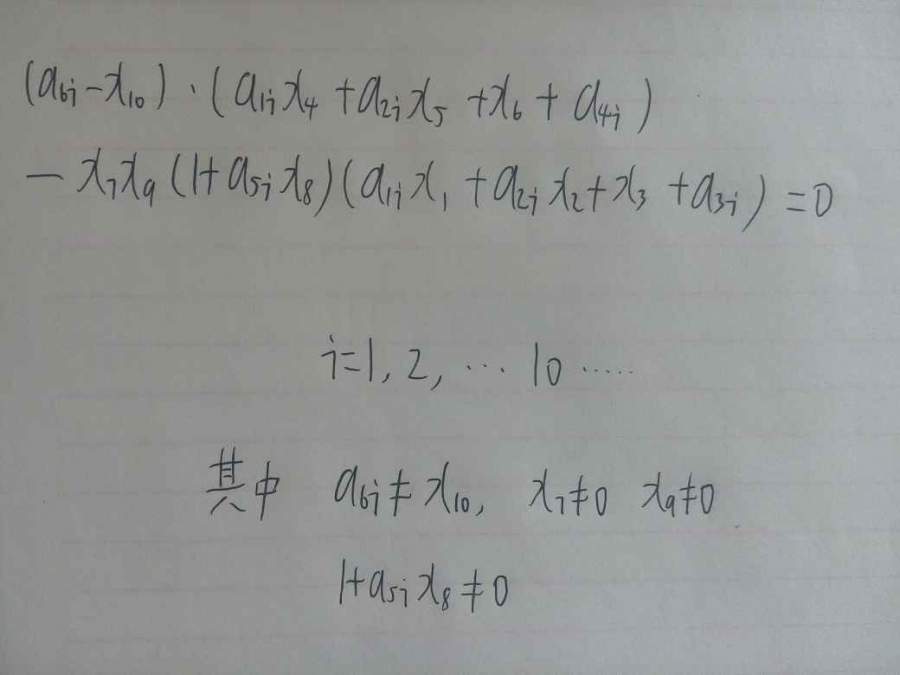 (a₆ᵢ-x₁₀)·(a₁ᵢx₄+a₂ᵢx₅+x₆+a₄ᵢ)
-x₇x₉(1+a₅ᵢx₈)(a₁ᵢx₁+a₂ᵢx₂+x₃+a₃ᵢ)=0
i=1,2,…10……
其中 a₆ᵢ≠x₁₀, x₇≠0 x₉≠0
1+a₅ᵢx₈≠0